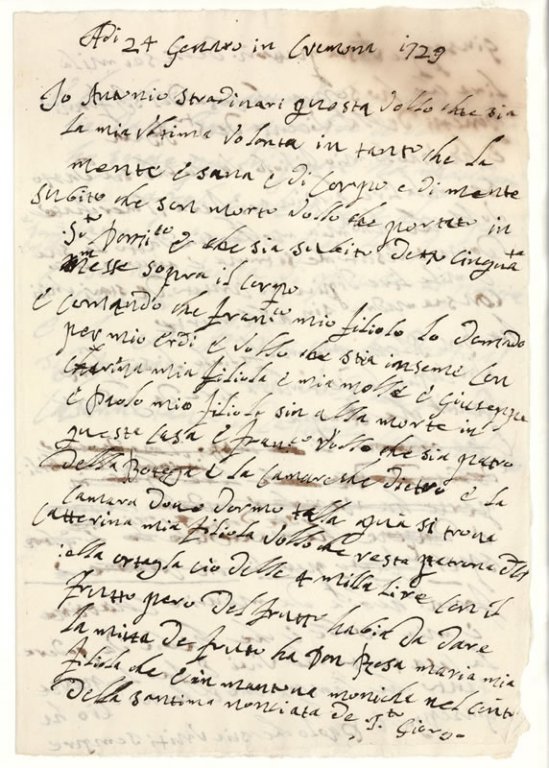 Adi 24 Genaro in Cremona 1729
Io Antonio Stradivari questa vollo che sia
la mia ultima volonta in tanto che la
mente è sana e di Corpo e di mente
subito che son morto vollo che portato in
S.to Domi.co e che sia subito deto cinqu.ta
messe sopra il corpo
E comando che Fran.co mio filiolo lo domado
per mio erdi e vollo che stia insene con
Catarina mia filiola e mia molie e Giuseppe
e Paolo mio filiolo sin alla morte in
questa casa e Fran.co vollo che sia patro
della Botega e la camare che dietro e la
camara doue dormo talla quia si trova
Catterina mia filiola vollo che resta patrona dla
ella ortagla cio delle 4 milla Lire con il
frutto pero Del frutto habia da dare
la mitta de fruto ha Don Rosa maria mia
filiola che è in mantoua monicha nel conto
della santima nonciata de S.to Gioro.